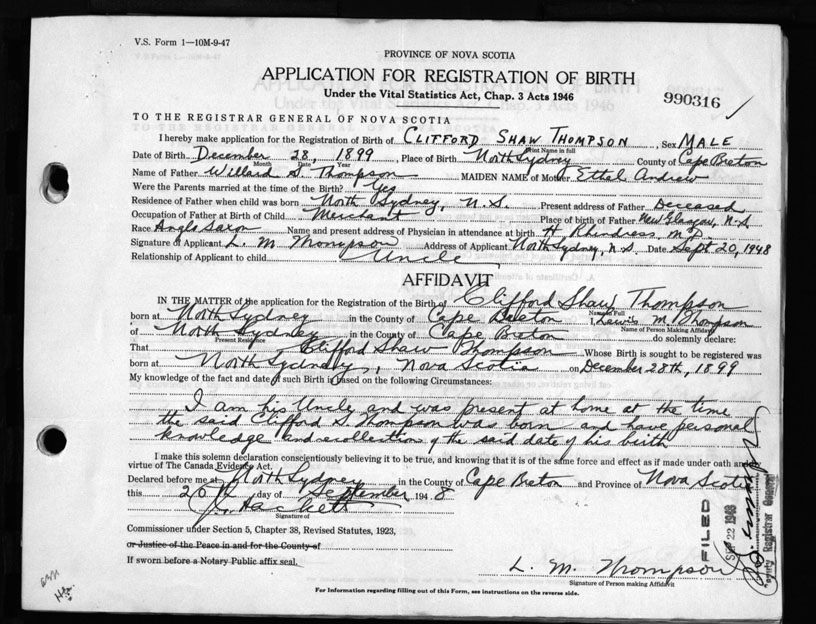 V.S. Form 1—10M-9-47
PROVINCE OF NOVA SCOTIA
APPLICATION FOR REGISTRATION OF BIRTH
Under the Vital Statistics Act, Chap. 3 Acts 1946
990316
TO THE REGISTRAR GENERAL OF NOVA SCOTIA
I hereby make application for the Registration of Birth of CLIFFORD SHAW THOMPSON, Sex MALE
Print Name in full
Date of Birth December 28, 1899, Place of Birth North Sydney County of Cape Breton
Month Date Year
Name of Father Willard S. Thompson MAIDEN NAME of Mother Ettal Andrew
Were the Parents married at the time of the Birth? Yes
Residence of Father when child was born North Sydney, N.S. Present address of Father Deceased
Occupation of Father at Birth of Child Merchant Place of birth of Father New Glasgow, N.S.
Race Anglo Saxon Name and present address of Physician in attendance at birth H. Rhindress, M.D.
Signature of Applicant L. M. Thompson Address of Applicant North Sydney, N.S. Date Sept 20, 1948
Relationship of Applicant to child Uncle
AFFIDAVIT
IN THE MATTER of the application for the Registration of the Birth of Clifford Shaw Thompson
Name in Full
born at North Sydney in the County of Cape Breton I, Lewis M. Thompson
Name of Person Making Affidavit
of North Sydney in the County of Cape Breton do solemnly declare:
Present Residence
That Clifford Shaw Thompson Whose Birth is sought to be registered was
born at North Sydney, Nova Scotia on December 28th, 1899
My knowledge of the fact and date of such Birth is based on the following Circumstances:
I am his Uncle and was present at home at the time
the said Clifford S. Thompson was born and have personal
knowledge and recollection of the said date of his birth
I make this solemn declaration conscientiously believing it to be true, and knowing that it is of the same force and effect as if made under oath and by
virtue of The Canada Evidence Act.
Declared before me at North Sydney in the County of Cape Breton and Province of Nova Scotia
this 20th day of September 1948
Signature of
Commissioner under Section 5, Chapter 38, Revised Statutes, 1923,
or Justice of the Peace in and for the County of
If sworn before a Notary Public affix seal.
L. M. Thompson
Signature of Person making Affidavit
For Information regarding filling out of this Form, see instructions on the reverse side.
FILED
SEP 22 1948
Deputy Registrar General